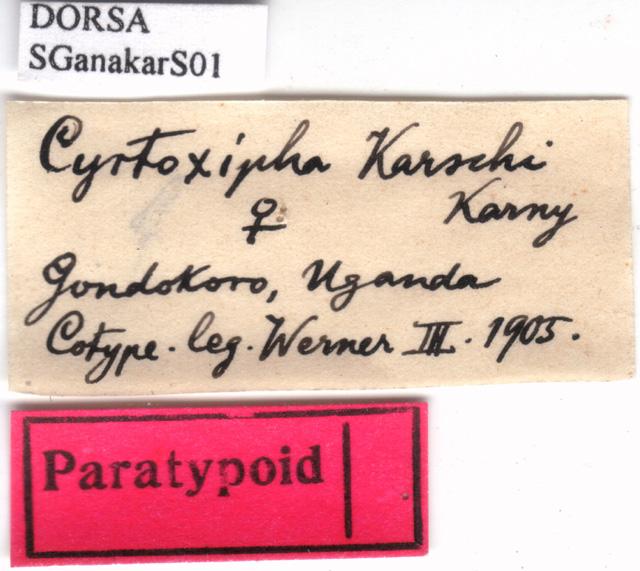 DORSA
SGanakarS01
Cyrtoxipha Karschi
♀ Karny
Gondokoro, Uganda
Cotype. leg. Werner III. 1905.
Paratypoid